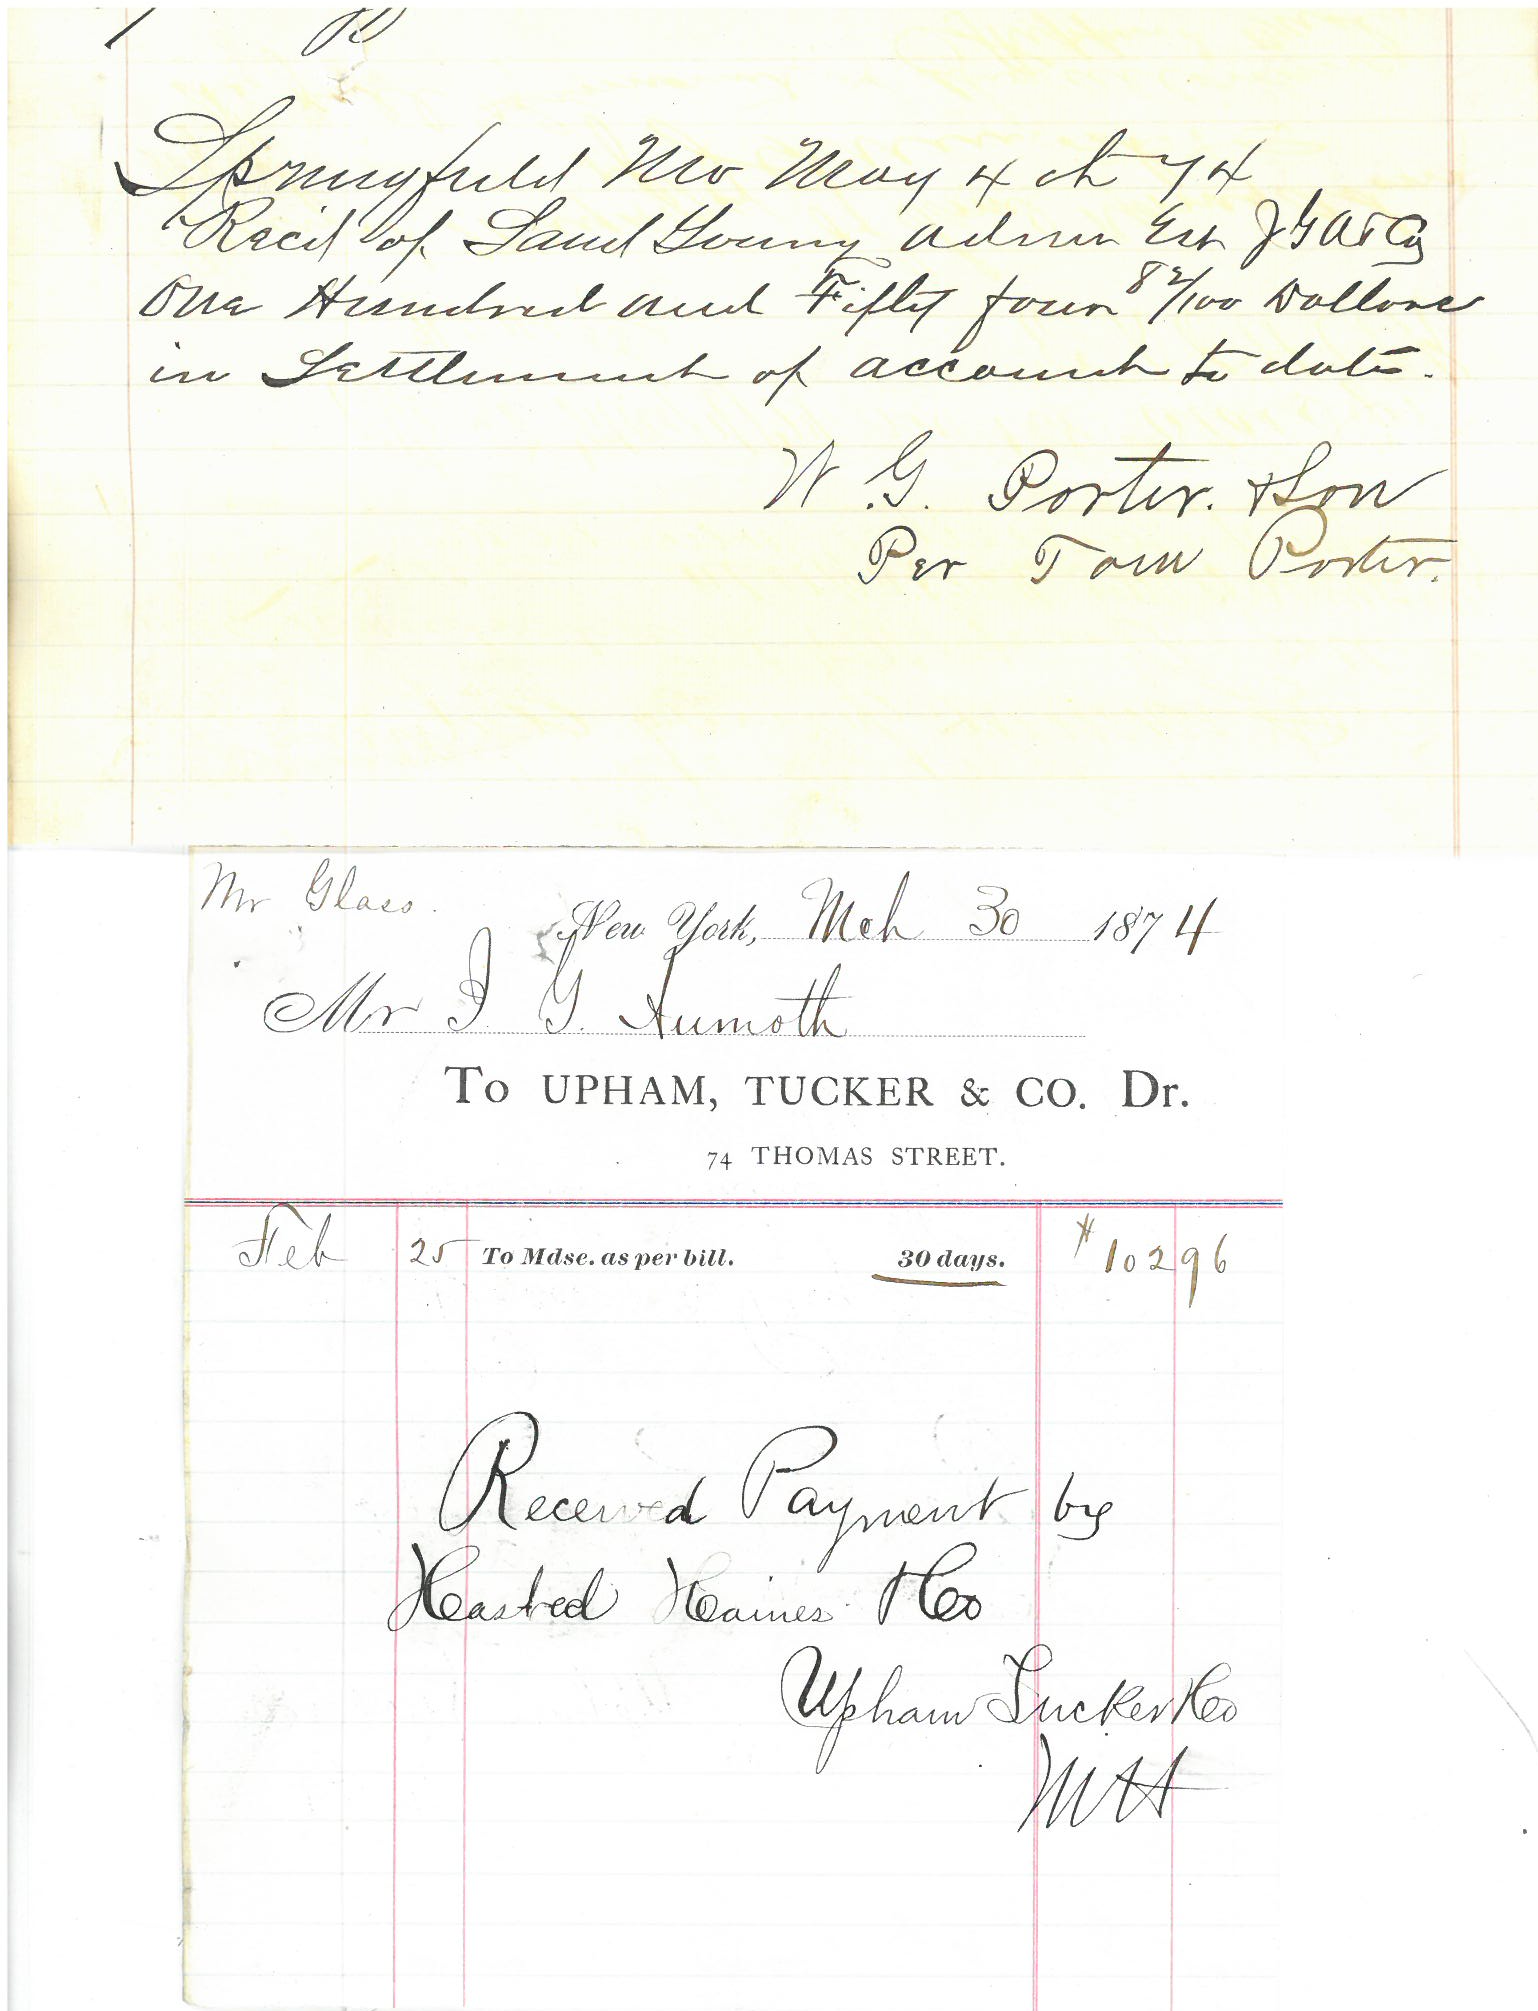 Springfield Mo May 4th 74
Recd of Saml Young Admr Est J G A & Co
One Hundred and Fifty four 82/100 Dollars
in Settlement of account to date.
W. G. Porter. & Son
Per Tom Porter.
Mr Glass.
New York, Mch 30 1874
Mr J. G.
To UPHAM, TUCKER & CO. Dr.
74 THOMAS STREET.
Feb 25 To Mdse. as per bill. 30 days. $102 96
Received Payment by
Hasted Haines & Co
Upham Tucker & Co
MH